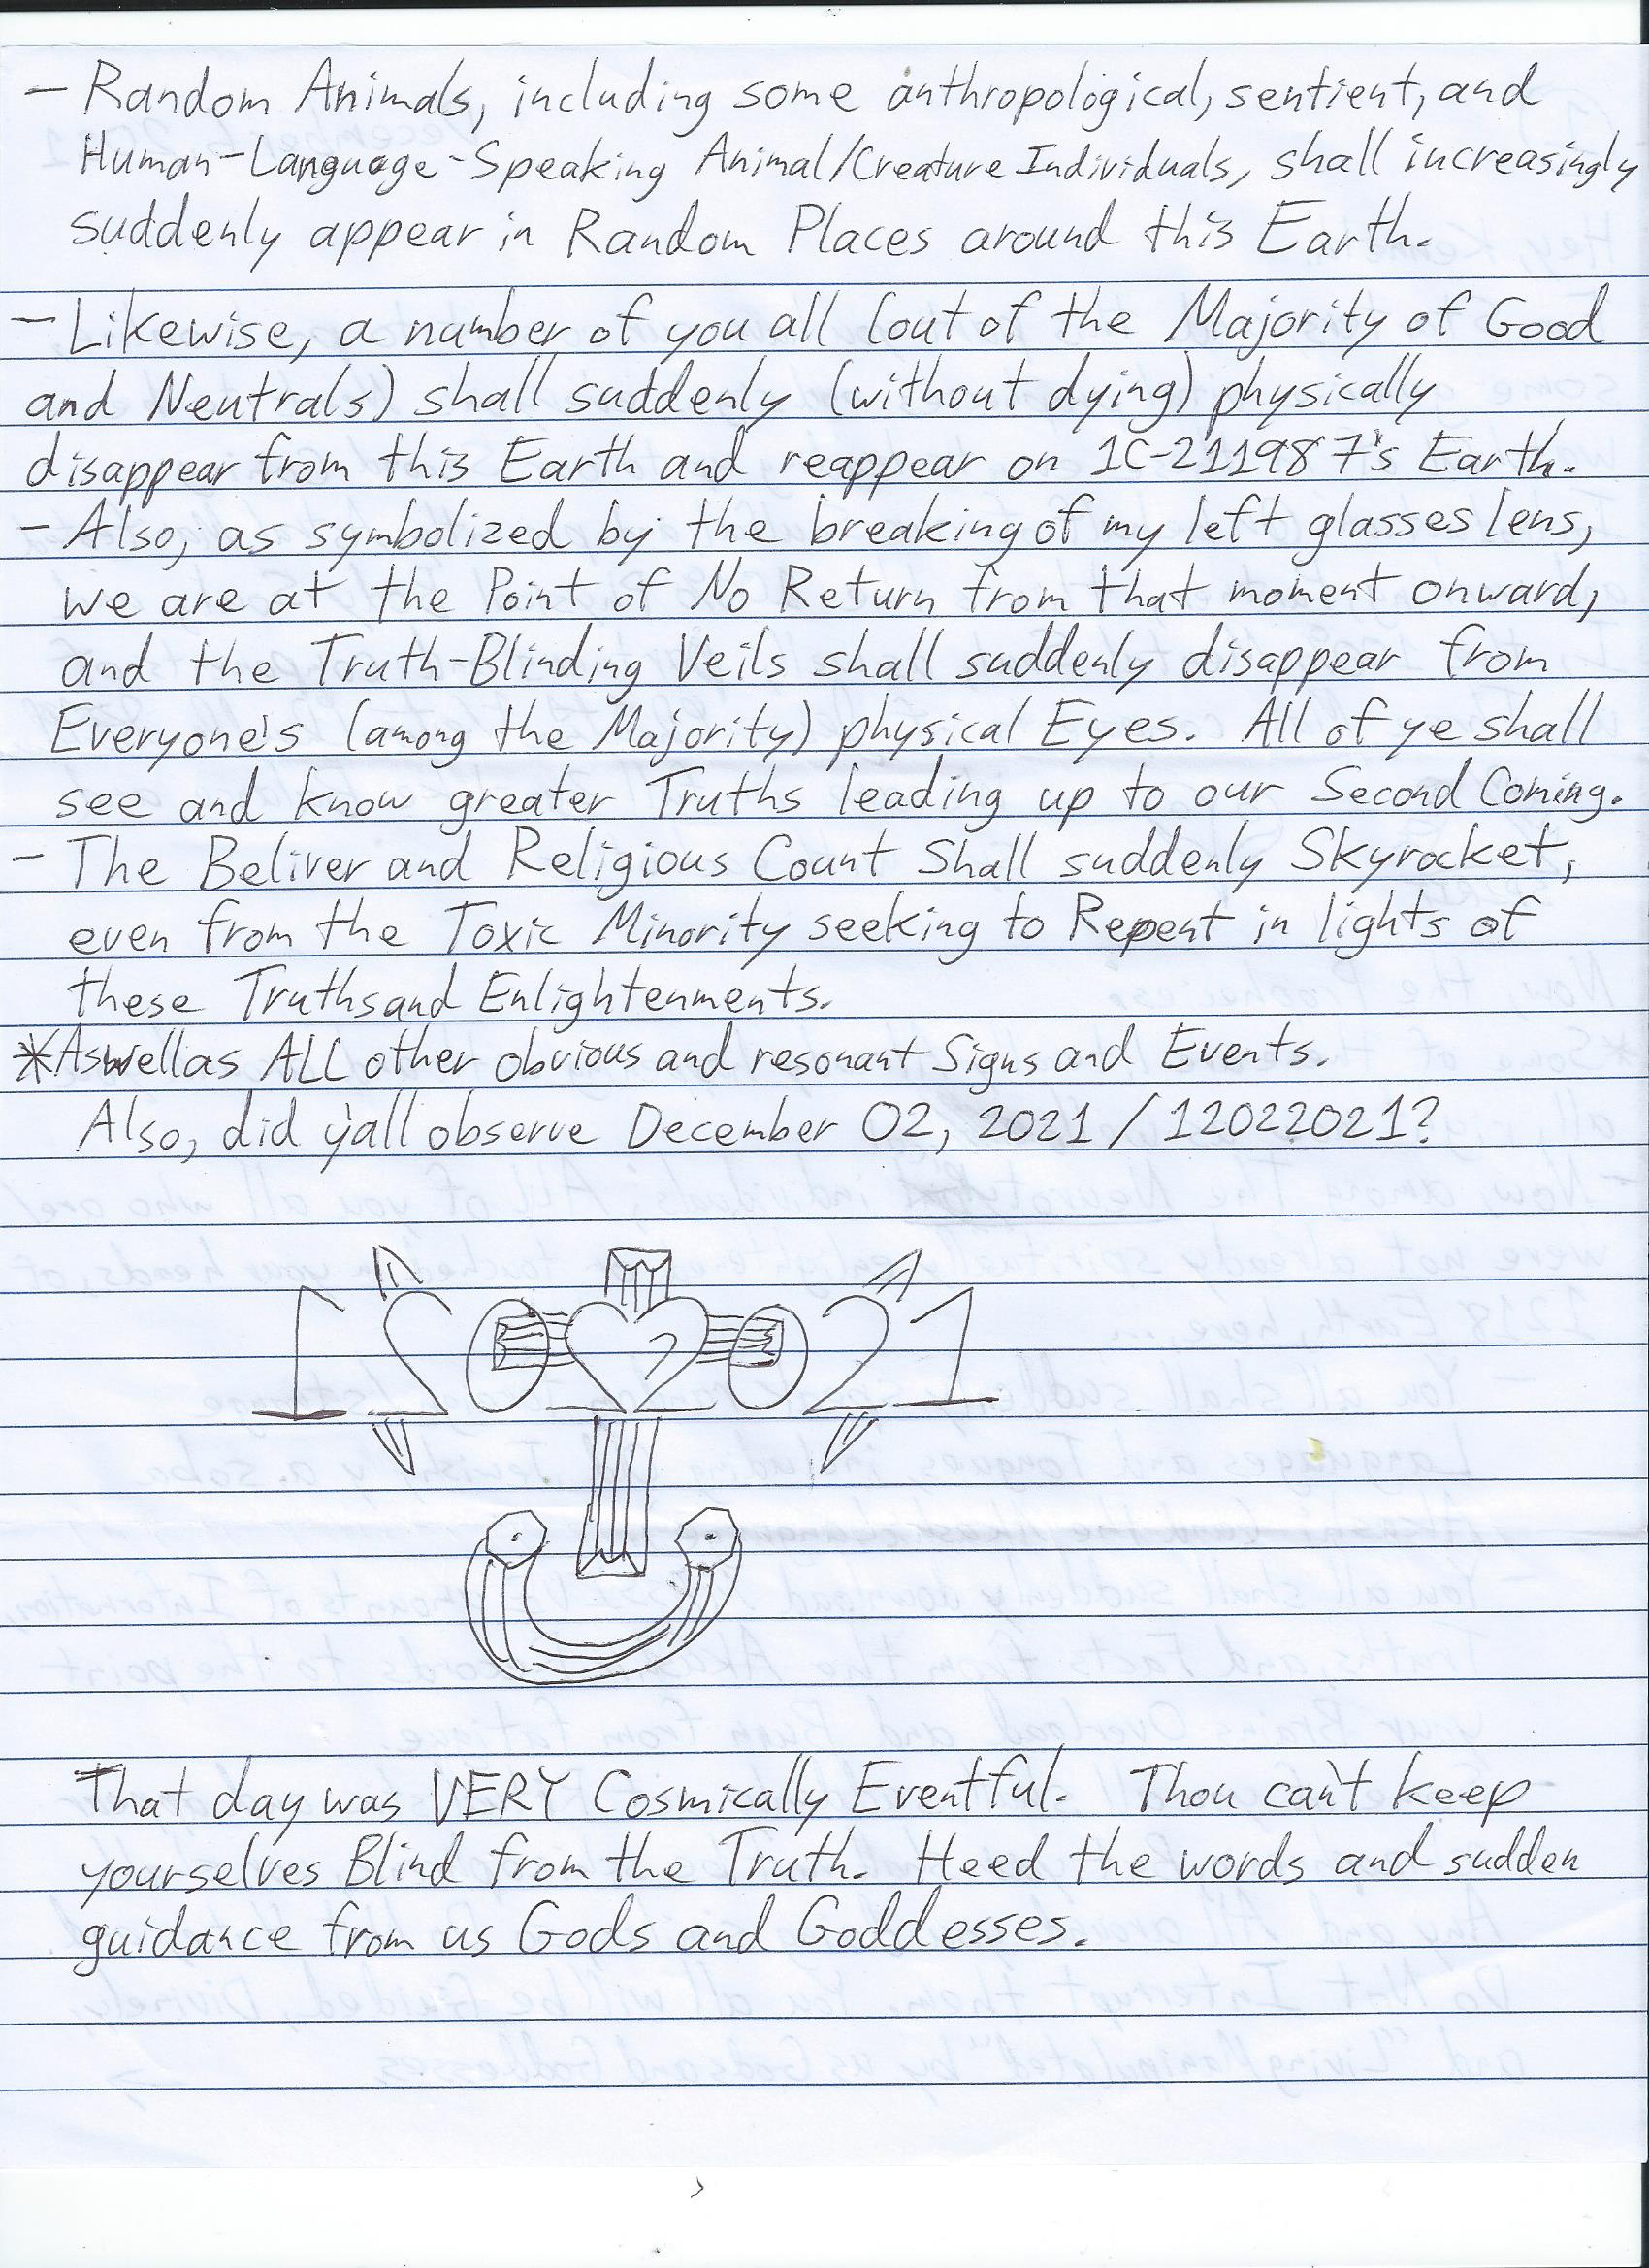 - Random Animals, including some anthropological, sentient, and
Human-Language-Speaking Animal/Creature Individuals, shall increasingly
suddenly appear in Random Places around this Earth.
- Likewise, a number of you all (out of the Majority of Good
and Neutrals) shall suddenly (without dying) physically
disappear from this Earth and reappear on 1C-211987's Earth.
- Also, as symbolized by the breaking of my left glasses lens,
we are at the Point of No Return from that moment onward,
and the Truth-Blinding Veils shall suddenly disappear from
Everyone's (among the Majority) physical Eyes. All of ye shall
see and know greater Truths leading up to our Second Coming.
- The Beliver and Religious Count Shall suddenly Skyrocket,
even from the Toxic Minority seeking to Repent in lights of
these Truths and Enlightenments.
*As well as ALL other obvious and resonant Signs and Events.
Also, did y'all observe December 02, 2021 / 12022021?
12022021
That day was VERY Cosmically Eventful. Thou can't keep
yourselves Blind from the Truth. Heed the words and sudden
guidance from us Gods and Goddesses.